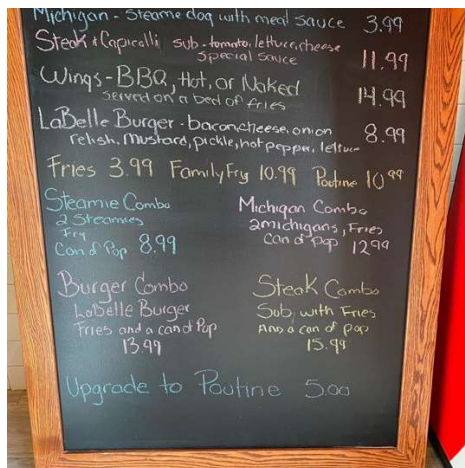 Michigan - Steame dog with meal sauce 3.99
Steak & Capicalli sub - tomato, lettuce, cheese
special sauce 11.99
Wings - BBQ, Hot, or Naked
served on a bed of fries 14.99
LaBelle Burger - bacon, cheese, onion
relish, mustard, pickle, hot pepper, lettuce 8.99
Fries 3.99 Family Fry 10.99 Poutine 10.99
Steamie Combo
2 Steamies
Fry
Can of Pop 8.99
Michigan Combo
2 michigans, Fries
Can of pop 12.99
Burger Combo
LaBelle Burger
Fries and a can of Pop
13.99
Steak Combo
Sub, with Fries
And a can of pop
15.99
Upgrade to Poutine 5.00